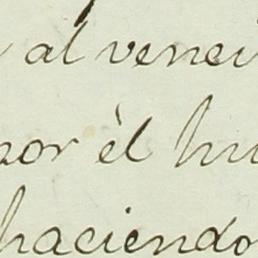 al venci
por èl hu
haciendo